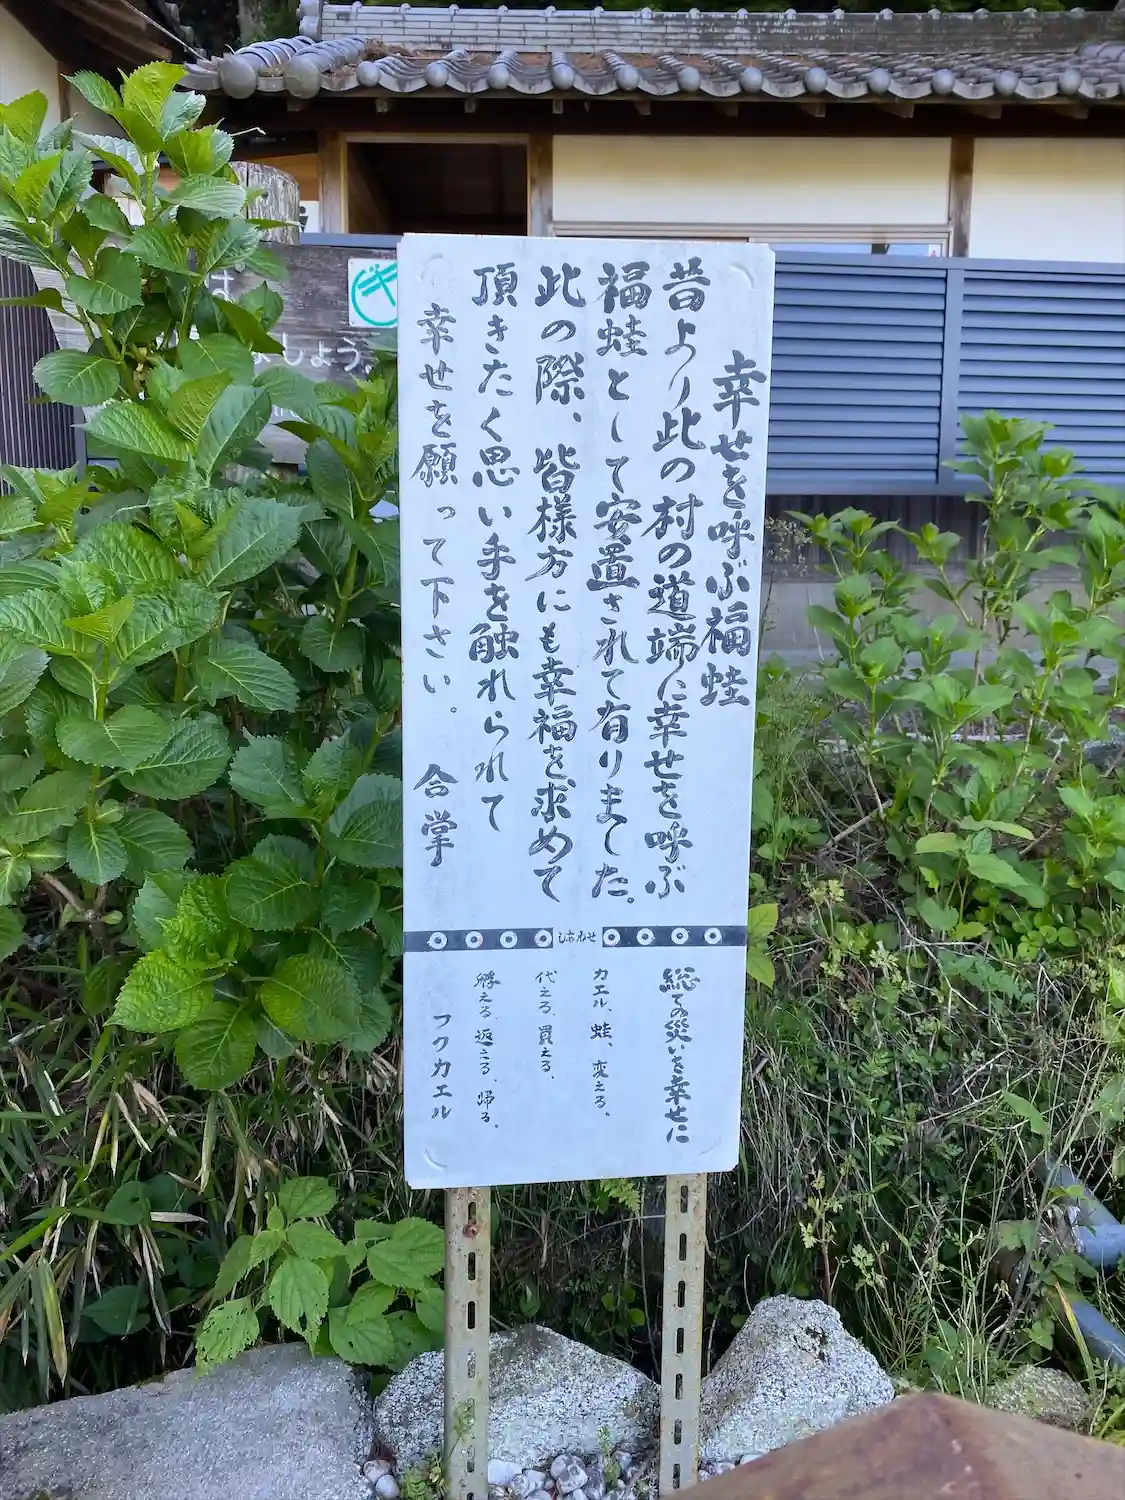 幸せを呼ぶ福蛙
昔より此の村の道端に幸せを呼ぶ
福蛙として安置されて有りました。
此の際、皆様方にも幸福を求めて
頂きたく思い手を触れられて
幸せを願って下さい。 合掌
しあわせ
総ての災いを幸せに
カエル、蛙、変える、
代える、買える、
返える、帰る、
フクカエル
しょう